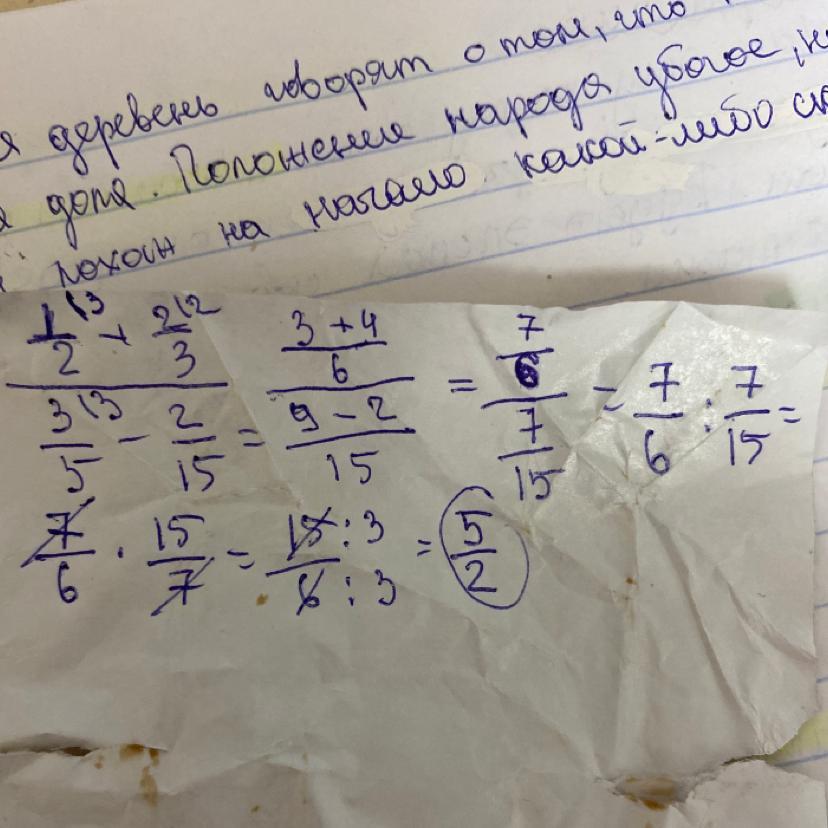 деревень говорят о том, что
доля. Положение народа убогое,
похож на начало какой-либо
(1/2 \3 + 2/3 \2) / (3/5 \3 - 2/15) = ((3+4)/6) / ((9-2)/15) = (7/6) / (7/15) = 7/6 : 7/15 =
7/6 · 15/7 = 15:3 / 6:3 = 5/2